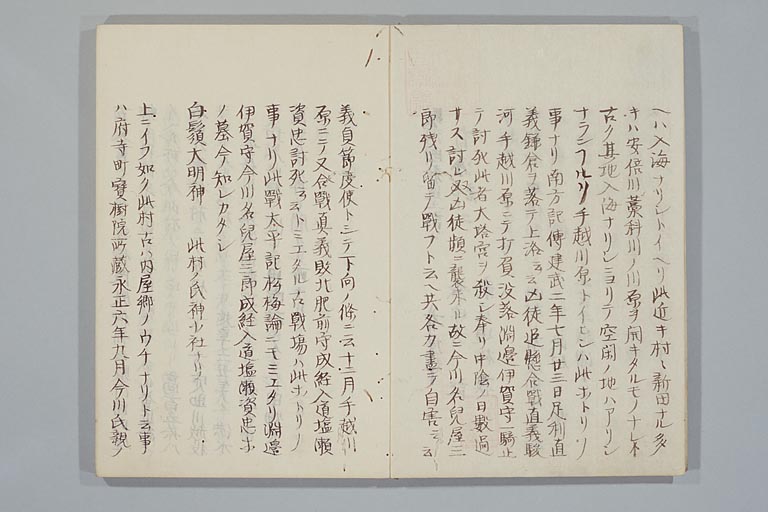 ヘハ入海ナリシトイヘリ此近キ村々新田ナル多
キハ安倍川藁科川ノ川原ヲ開キタルモノナレハ
古ク其地入海ナリシニヨリテ空閑ノ地ハアリシ
ナランフルク手越川原トイヒシハ此ホトリノ
事ナリ南方記傳建武二年七月廿三日足利直
義鎌倉ヲ落テ上洛云云凶徒追懸合戰直義駿
河手越川原ニテ打負没落淵邊伊賀守一騎止
テ討死此者大塔宮ヲ殺シ奉リ中陰ノ日數過
サス討レ畢凶徒頻ニ襲来ル故ニ今川名兒屋三
郎残リ留テ戰フト云ヘ共各力盡テ自害云云
義貞節度使トシテ下向ノ條ニ云十二月手越川
原ニテ又合戰眞義敗北肥前守成経入道塩瀬
資忠討死云云トミエタル古戰場ハ此ホトリノ
事ナリ此戰太平記松梅論ニモミエタリ淵邊
伊賀守今川名兒屋三郎成経入道塩瀬資忠ホ
ノ墓今知レカタシ
白鬚大明神 此村ノ氏神小社ナリ
上ニイフ如ク此村古ハ内屋郷ノウチナリト云事
ハ府寺町寳樹院所蔵永正六年九月今川氏親ノ